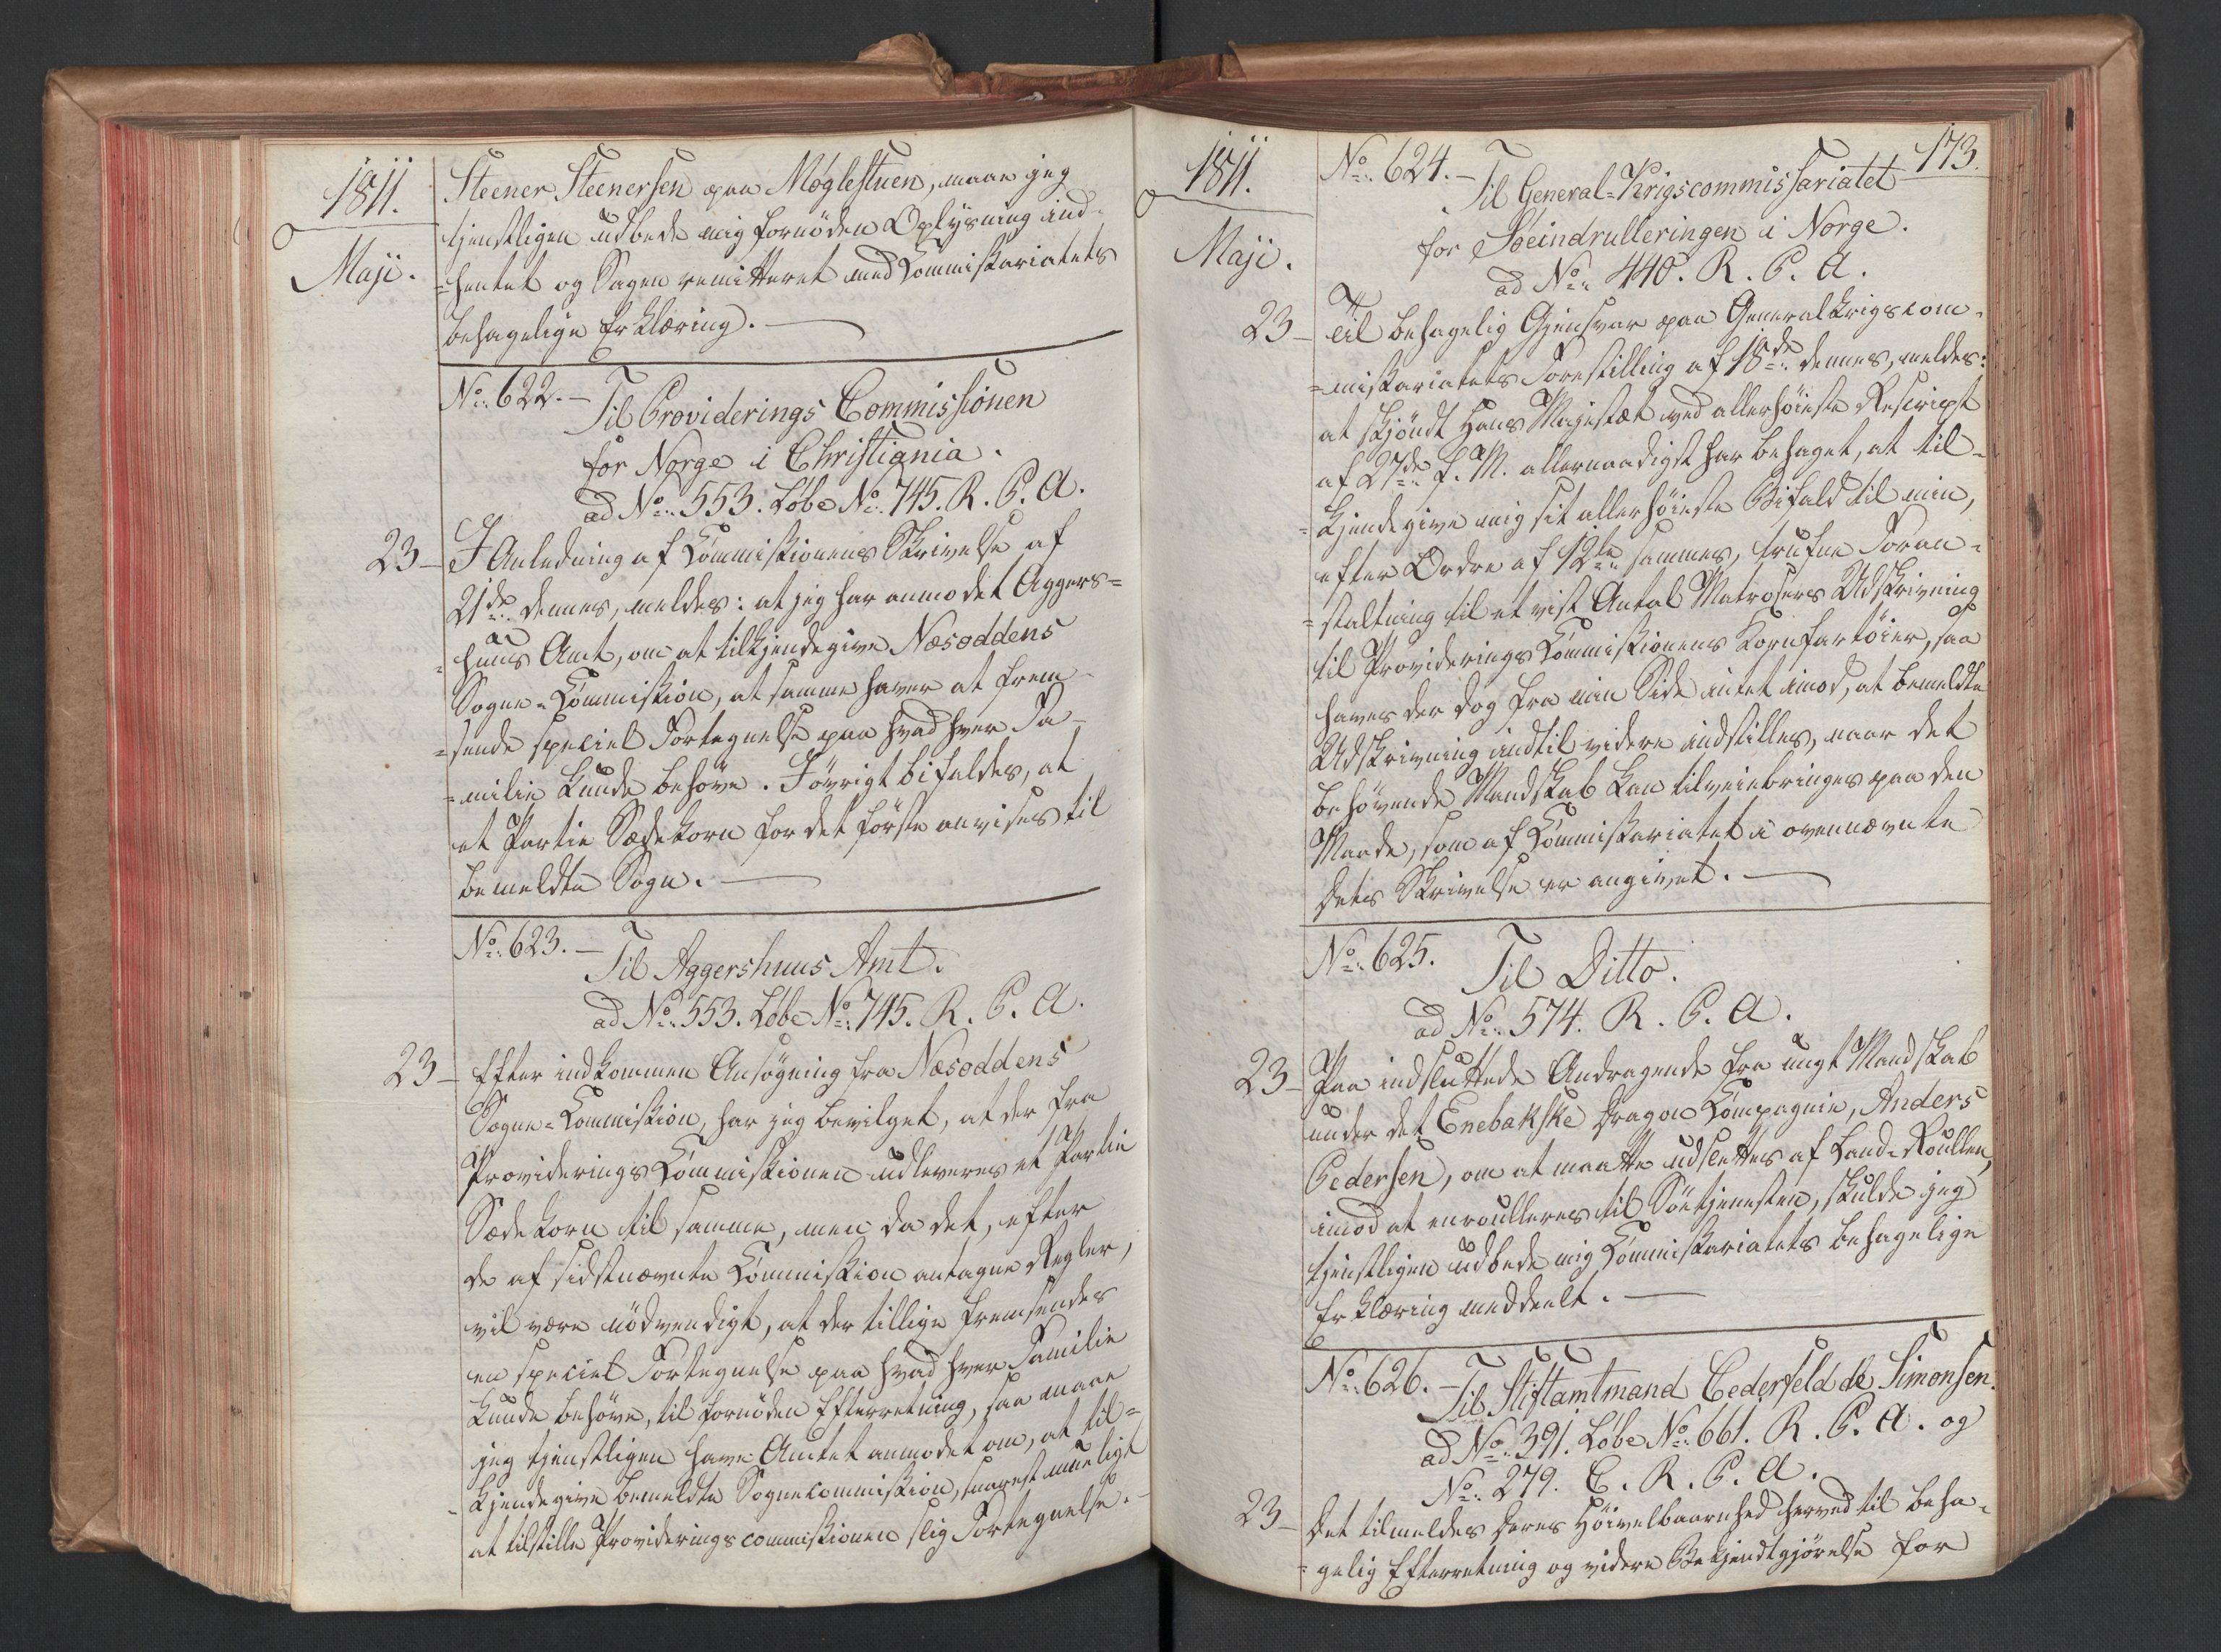 1811.
Maji.
Steener Steenersen paa Møglestuen, maae jeg
tjenstligen udbede mig fornöden Oplysning ind-
=hentet og Sagen remitteret med Commissariatets
behagelige Erklæring.
No. 622. — Til Providerings Commissionen
for Norge i Christiania.
ad No. 553. Löbe No. 745. R. P. A.
23 — I Anledning af Commissionens Skrivelse af
21de dennes, meldes: at jeg har anmodet Aggers=
=huus Amt, om at tilkjendegive Næsoddens
Sogne-Commission, at samme haver at frem-
=sende speciel Fortegnelse paa hvad hver Fa-
=milie kunde behöve. I övrigt bifaldes, at
et Partie Sædekorn for det förste anvises til
bemeldte Sogn.
No. 623. — Til Aggershuus Amt.
ad No. 553. Löbe No. 745. R. P. A.
23 — Efter indkommen Ansögning fra Næsoddens
Sogne-Commission, har jeg bevilget, at der fra
Providerings Commissionen udleveres et Partie
Sædekorn til samme, men da det, efter
de af sidstnævnte Commission antagne Regler,
vil være nödvendigt, at der tillige fremsendes
en speciel Fortegnelse paa hvad hver Familie
kunde behöve, til fornöden Efterretning, saa maae
jeg tjenstligen have Amtet anmodet om, at til=
=kjendegive bemeldte Sognecommission, snarest mueligt
at tilstille Provideringscommissionen slig Fortegnelse.
173.
1811.
Maji.
No. 624. — Til General-Krigscommissariatet
for Søeindrulleringen i Norge.
ad No. 440. R. P. A.
23 — Til behagelig Gjensvar paa Generalkrigscom-
=missariatets Forestilling af 18de dennes, meldes:
at skjöndt Hans Majestæt ved allerhöieste Rescript
af 27de f. M. allernaadigst har behaget, at til-
=kjendegive mig sit allerhöieste Bifald til min,
efter Ordre af 12te sammes, trufne Foran-
=staltning til et vist Antal Matrosers Udskrivning
til Providerings Commissionens Kornfartöier, saa
haves der dog fra min Side intet imod, at bemeldte
Udskrivning indtil videre indstilles, naar det
behövende Mandskab kan tilveiebringes paa den
Maade, som af Commissariatet i ovennævnte
dets Skrivelse er angivet.
No. 625. Til Ditto.
ad No. 574. R. P. A.
23 — Paa indsluttede Andragende fra ungt Mandskab
under det Enebakske Dragon Compagnie, Anders
Pedersen, om at maatte udslettes af Land-Roullen,
imod at enroulleres til Söetjenesten, skulde jeg
tjenstligen udbede mig Commissariatets behagelige
Erklæring meddeelt.
No. 626. — Til Stiftamtmand Cederfeld de Simonsen.
ad No. 391. Löbe No. 661. R. P. A. og
No. 279. C. R. P. A.
23 — Det tilmeldes Deres Höivelbaarnhed herved til beha-
=gelig Efterretning og videre Bekjendtgjörelse for